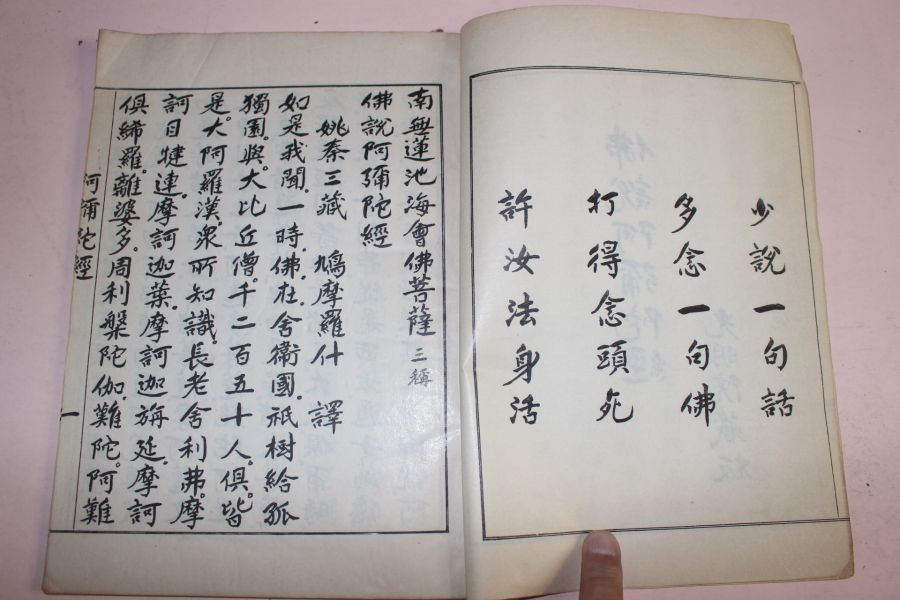 少說一句話
多念一句佛
打得念頭死
許汝法身活
南無蓮池海會佛菩薩三稱
佛說阿彌陀經
姚秦三藏 鳩摩羅什 譯
如是我聞。一時。佛在舍衛國。祇樹給孤
獨園。與大比丘僧。千二百五十人俱。皆
是大阿羅漢。眾所知識。長老舍利弗。摩
訶目犍連。摩訶迦葉。摩訶迦旃延。摩訶
俱絺羅。離婆多。周利槃陀伽。難陀。阿難
阿彌陀經 一